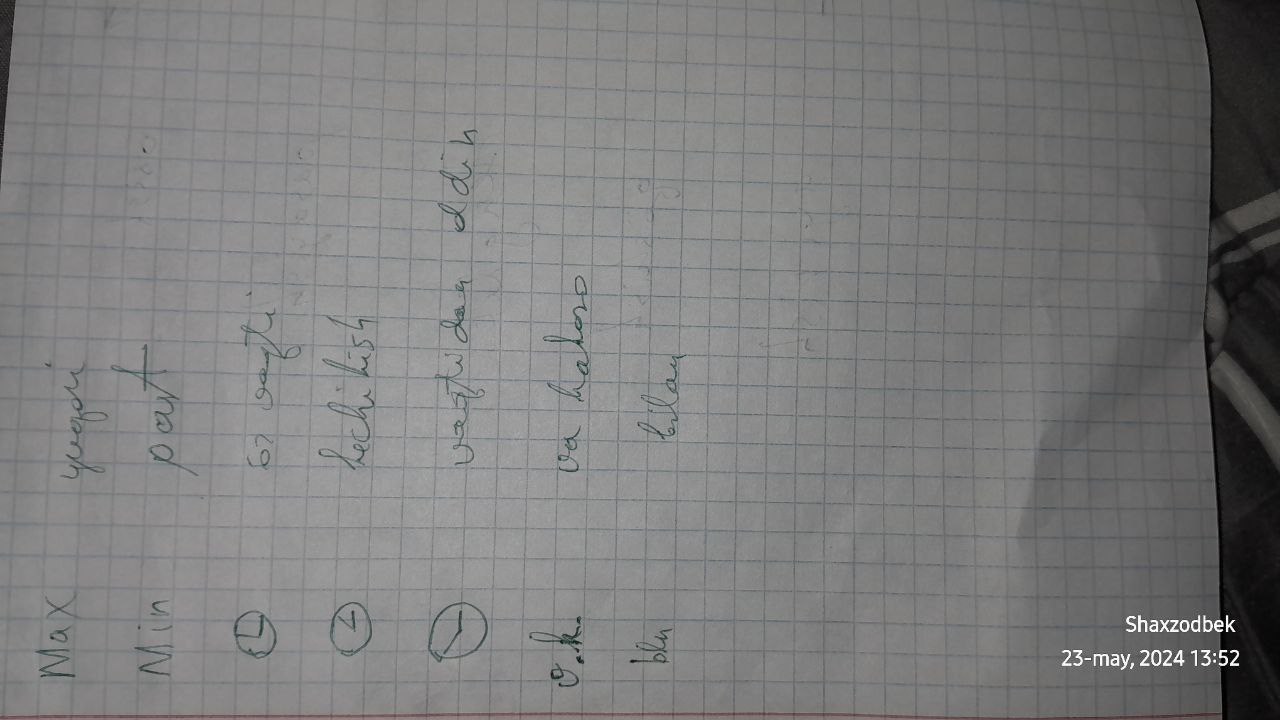 Max yuqori
Min past
oz vaqti
kechikish
vaqtidan oldin
v.k. va hakozo
bln bilan
Shaxzodbek
23-may, 2024 13:52